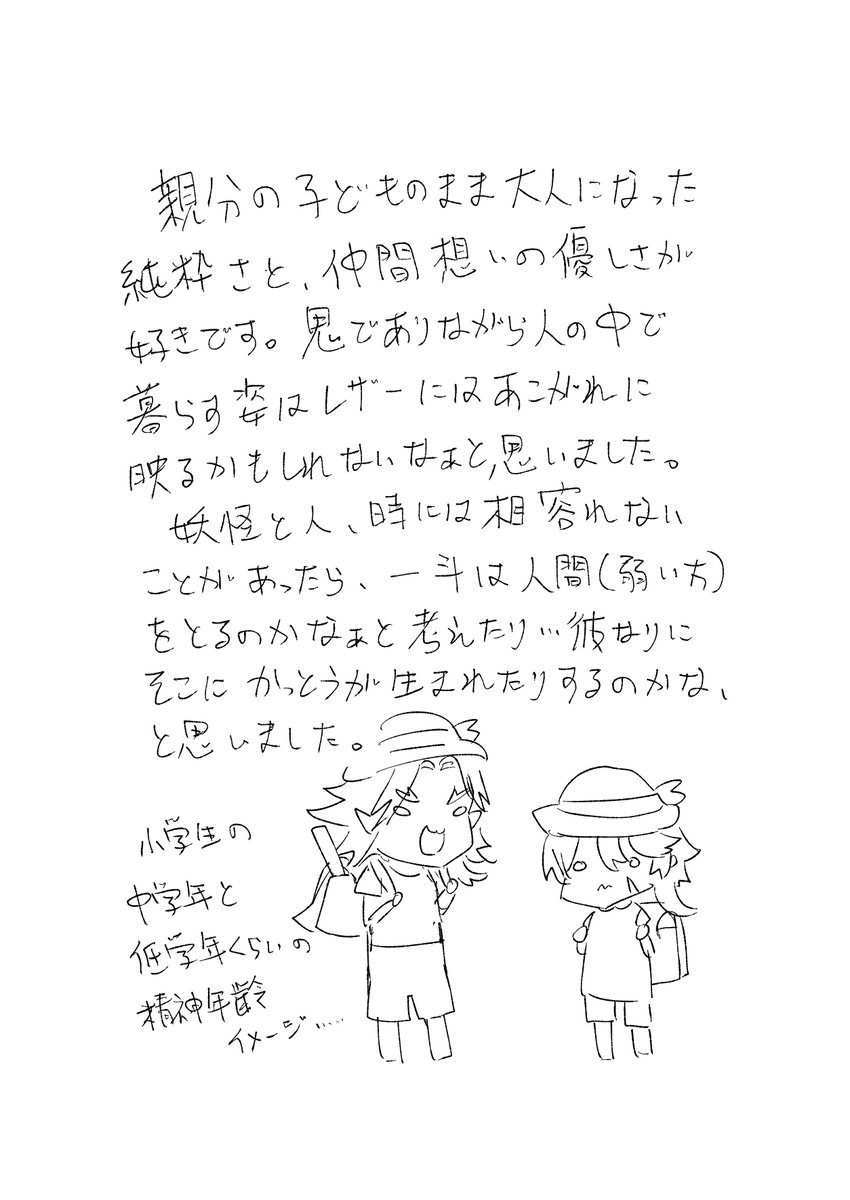 親分の子どものまま大人になった
純粋さと、仲間想いの優しさが
好きです。鬼でありながら人の中で
暮らす姿はレザーにはあこがれに
映るかもしれないなぁと、思いました。
妖怪と人、時には相容れない
ことがあったら、一斗は人間(弱い方)
をとるのかなぁと考えたり…彼なりに
そこにかっとうが生まれたりするのかな、
と思いました。
小学生の
中学年と
低学年くらいの
精神年齢
イメージ……